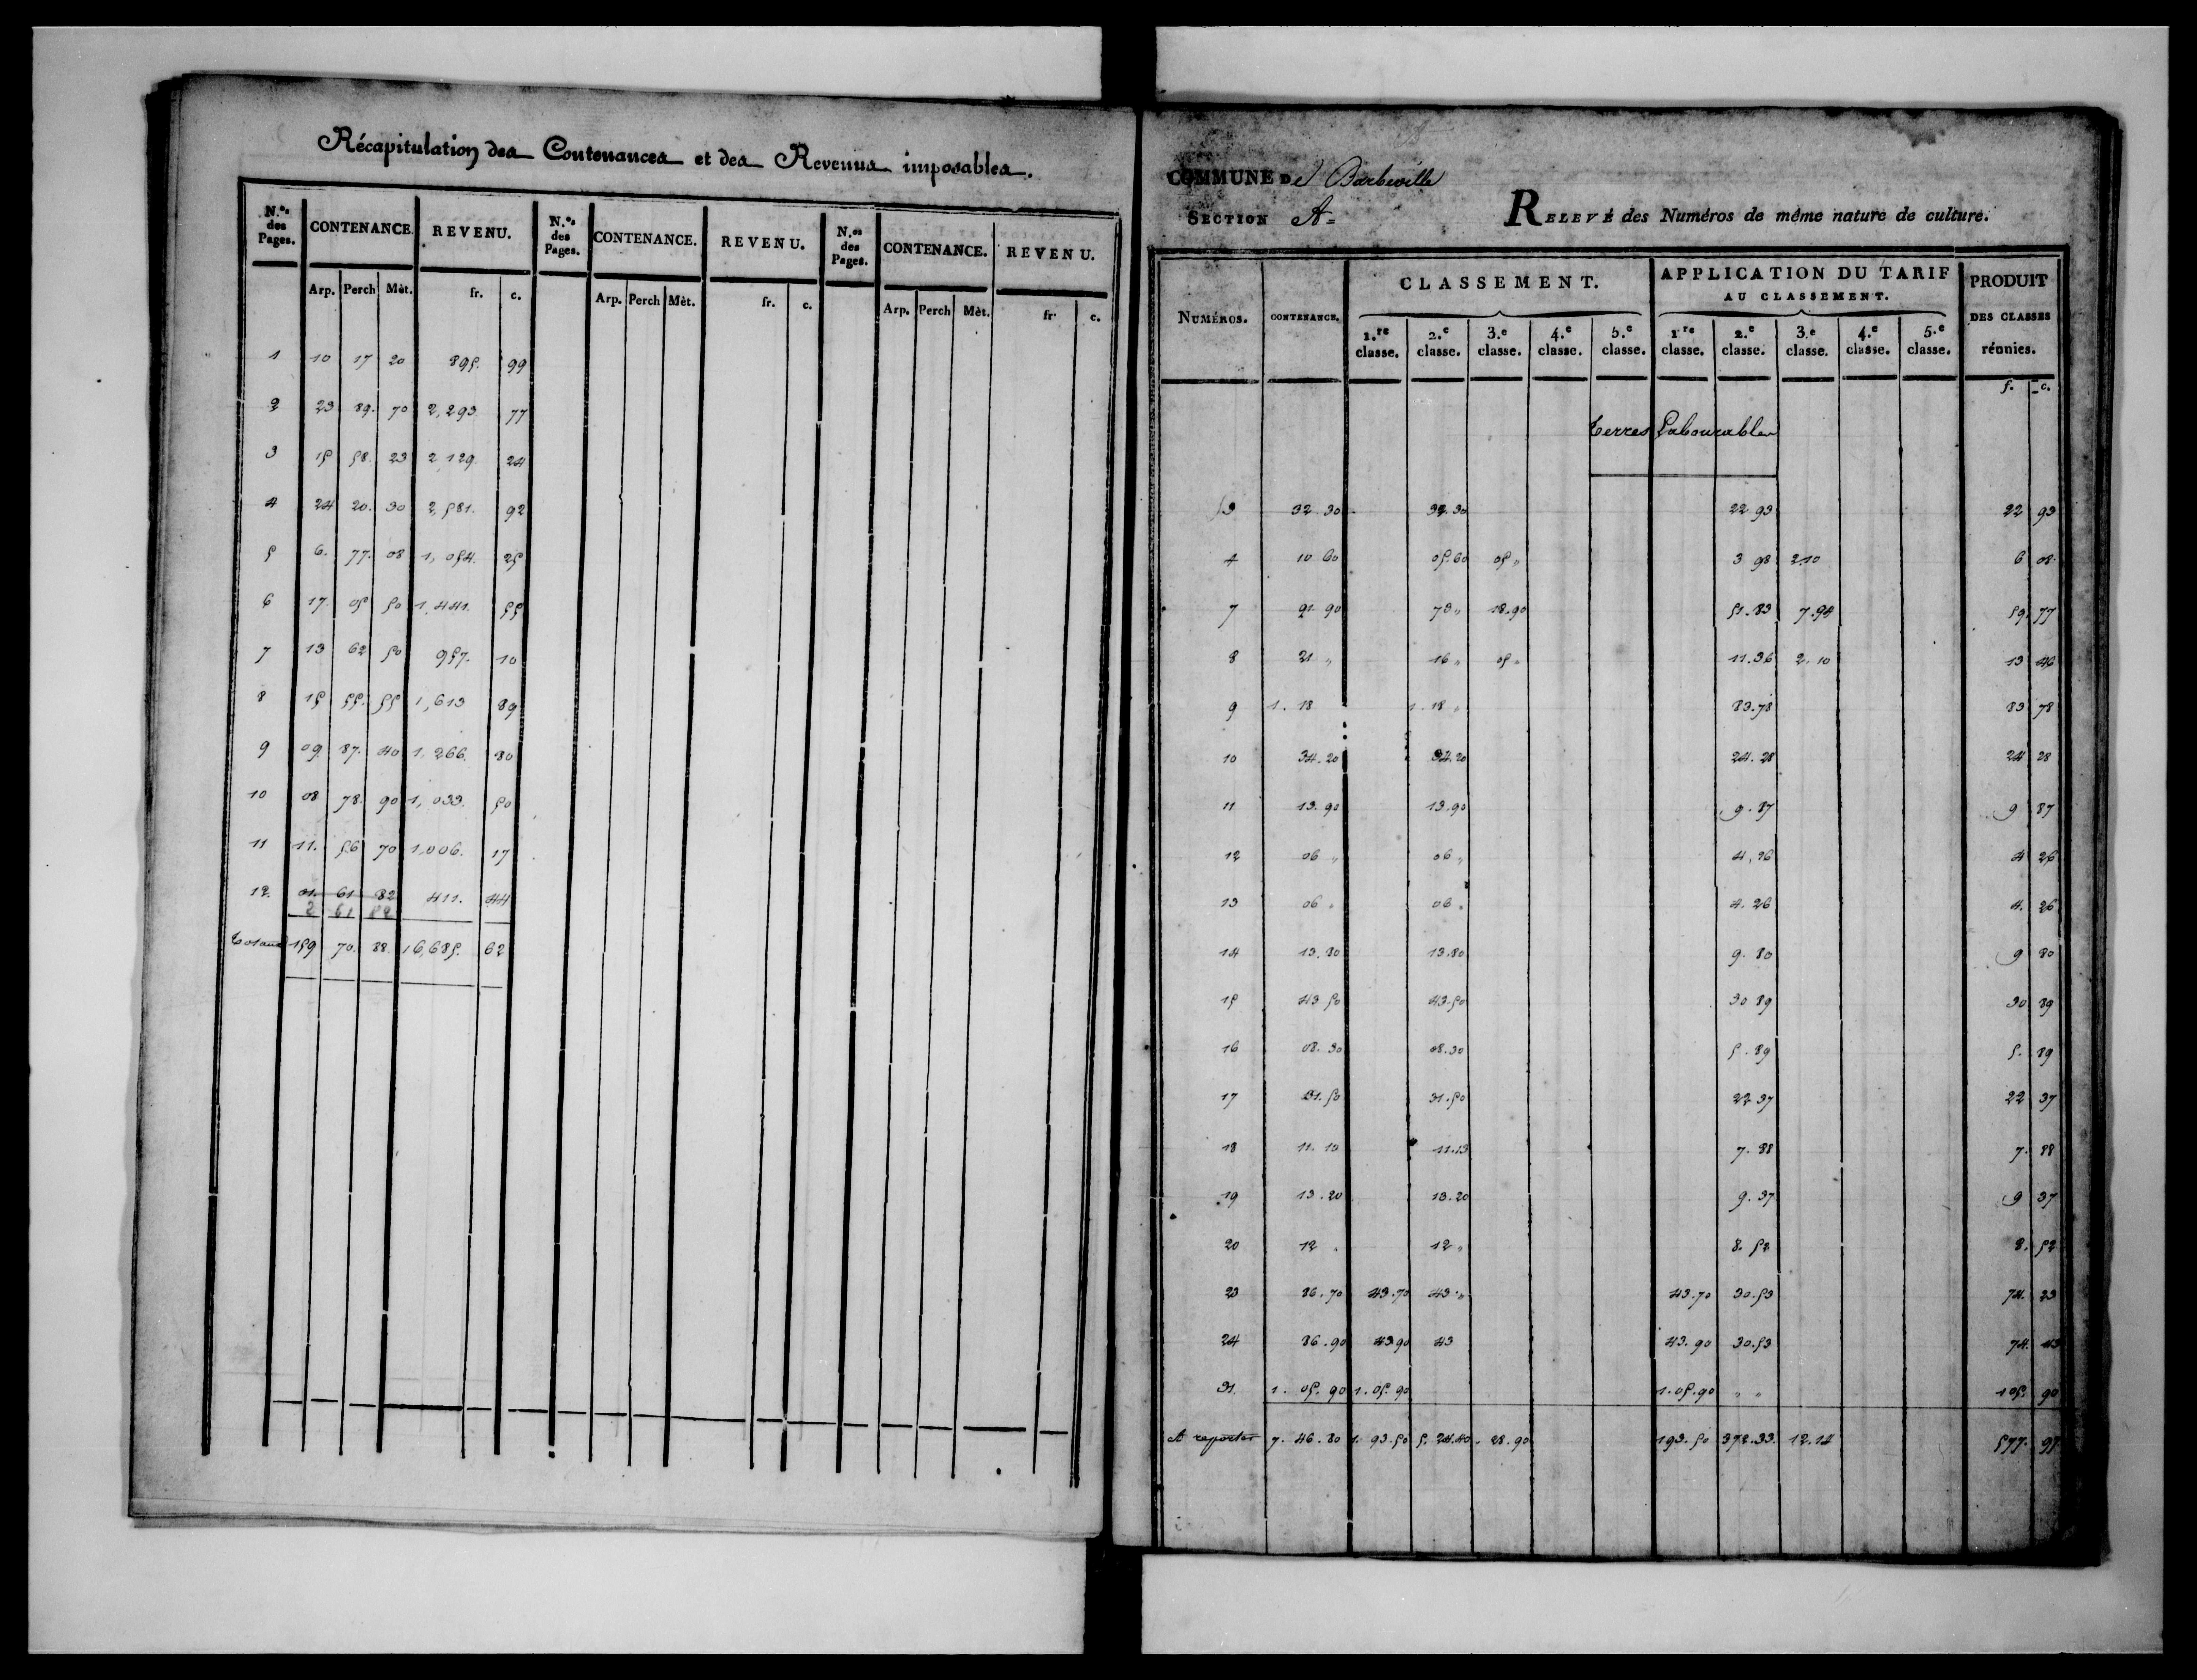 Récapitulation des Contenances et des Revenus imposables.
N.os des Pages. CONTENANCE. REVENU. N.os des Pages. CONTENANCE. REVENU. N.os des Pages. CONTENANCE. REVENU.
Arp. Perch Mèt. fr. c. Arp. Perch Mèt. fr. c. Arp. Perch Mèt. fr. c.
1 10 17 20 895. 99
2 23 89. 70 2,293 77
3 15 58. 23 2,129. 24
4 24 20. 30 2,581. 92
5 6. 77. 08 1,054. 25
6 17. 05 50 1,441. 55
7 13 62 50 957. 10
8 15 55. 55 1,613 89
9 09. 87. 40 1,266. 80
10 08 78. 90 1,033. 50
11 11. 56 70 1,006. 17
12. 01. 61 82 411. 44
2 61 82
Totaux 159 70. 88. 16,685. 62
COMMUNE De Barbeville
SECTION A=
RELEVÉ des Numéros de même nature de culture.
NUMÉROS. CONTENANCE. CLASSEMENT. APPLICATION DU TARIF AU CLASSEMENT. PRODUIT DES CLASSES réunies.
1.re classe. 2.e classe. 3.e classe. 4.e classe. 5.e classe. 1re classe. 2.e classe. 3.e classe. 4.e classe. 5.e classe.
f. c.
Terres Labourables
3 32 30 32.30 22 93 22 93
4 10 60 05.60 05 „ 3 98 2.10 6 08
7 91 90 73 „ 18.90 51.83 7.94 59. 77
8 21 „ 16 „ 05 „ 11.36 2.10 13 46
9 1. 18 1. 18 „ 83.78 83 78
10 34.20 34.20 24.28 24 28
11 13.90 13.90 9.87 9 87
12 06 „ 06 „ 4.26 4 26
13 06 „ 06 „ 4.26 4. 26
14 13.80 13.80 9.80 9 80
15 43 50 43.50 30 89 30 89
16 08.30 08.30 5.89 5. 89
17 31.50 31.50 22 37 22 37
18 11.10 11.10 7.88 7. 88
19 13.20 13.20 9.37 9 37
20 12 „ 12 „ 8.52 8. 52
23 86.70 43.70 43 „ 43.70 30.53 74. 23
24 86.90 43 90 43 43.90 30.53 74. 43
31. 1. 05. 90 1. 05. 90 1.05.90 „ „ 105. 90
A reporter 7. 46. 80 1. 93.50 5. 24.40 „ 28.90 193.50 372.33. 12.14 577. 97